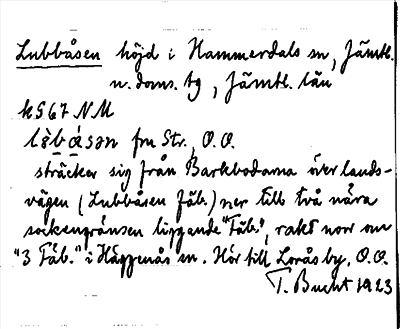 Lubbåsen höjd i Hammerdals sn, Jämtl.
n. doms. tg, Jämtl. län
k 567 NM
fru Str., O.O.
sträcker sig från Barkbodarna över lands-
vägen (Lubbåsen fäb.) ner till två nära
sockengränsen liggande "Fäb.", rakt norr om
"3 Fäb." i Häggenås sn. Hör till Loråsby. O.O.
T. Bucht 1923